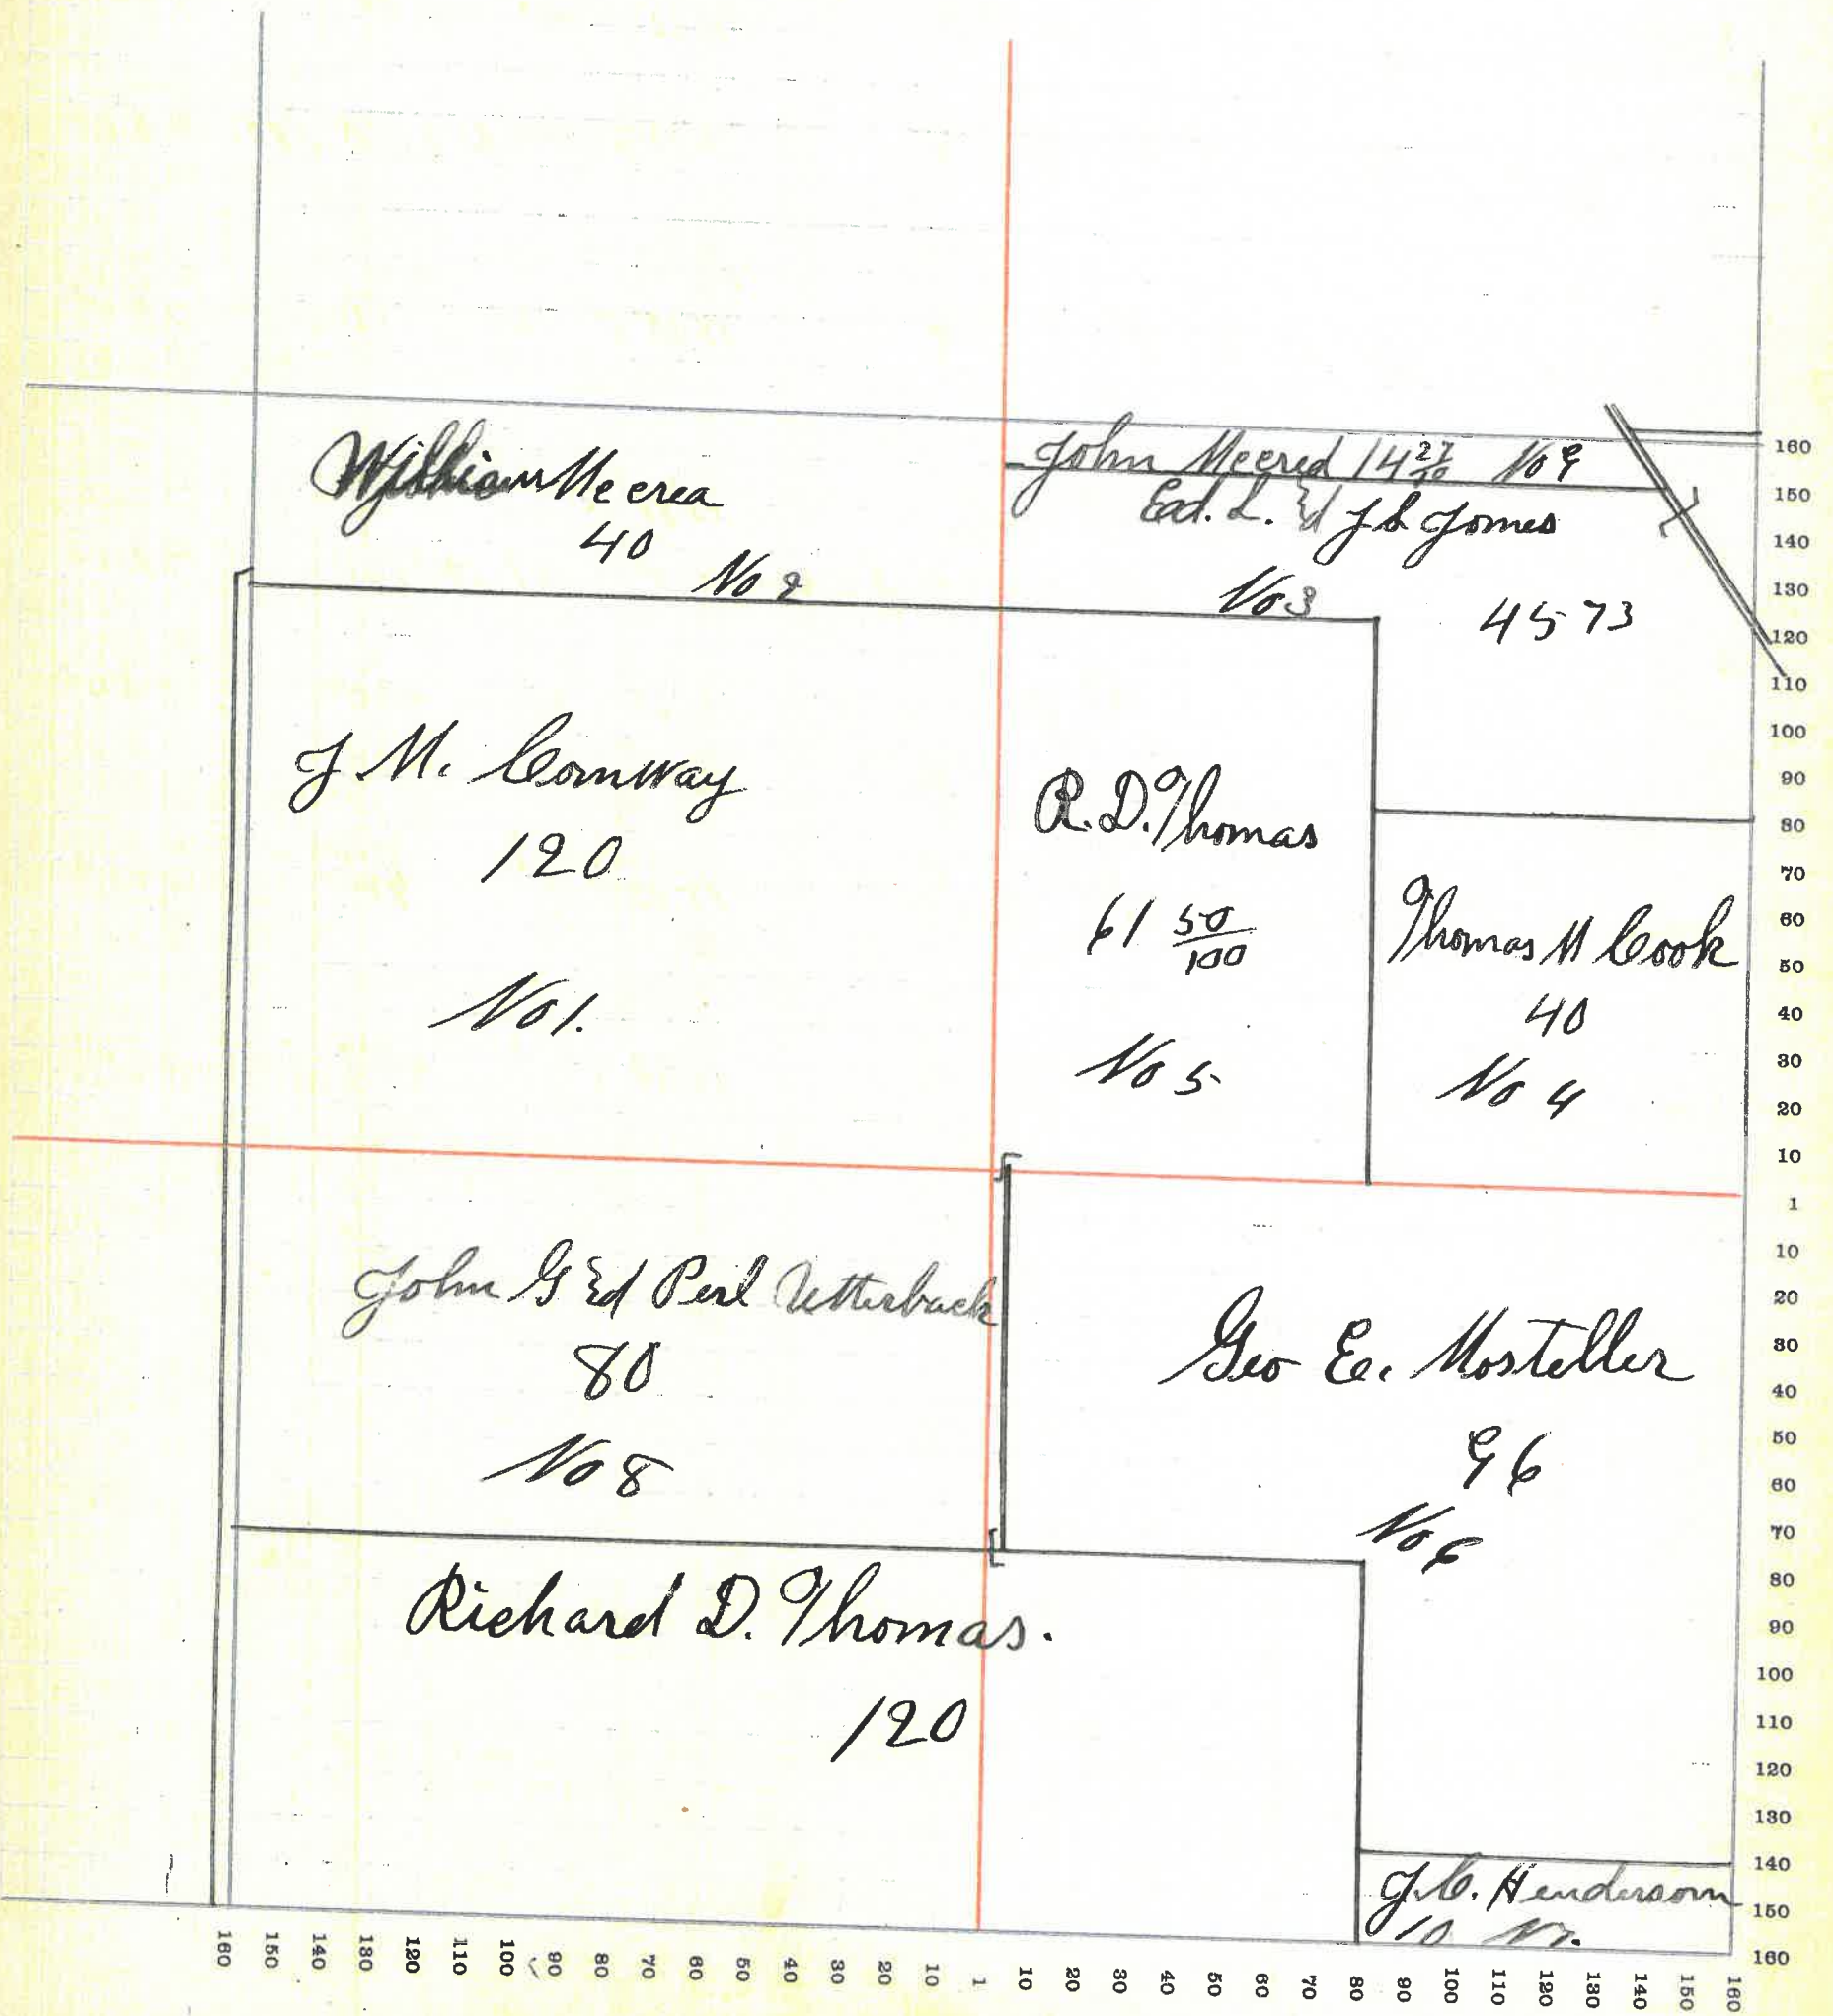 William Mecrea
40
No 2
John Mecred 14 27/70 No 9
Ed. L. Ed J L Jomes
No 3
45 73
J M. Comway
120
No 1.
R. D. Thomas
61 50/100
No 5
Thomas M Cook
40
No 4
John G Ed Perl Utterback
80
No 8
Geo E. Mosteller
96
No 6
Richard D. Thomas.
120
J. C. Hendersorn
10
160
150
140
130
120
110
100
90
80
70
60
50
40
30
20
10
1
10
20
30
40
50
60
70
80
90
100
110
120
130
140
150
160
160 150 140 130 120 110 100 90 80 70 60 50 40 30 20 10 1 10 20 30 40 50 60 70 80 90 100 110 120 130 140 150 160